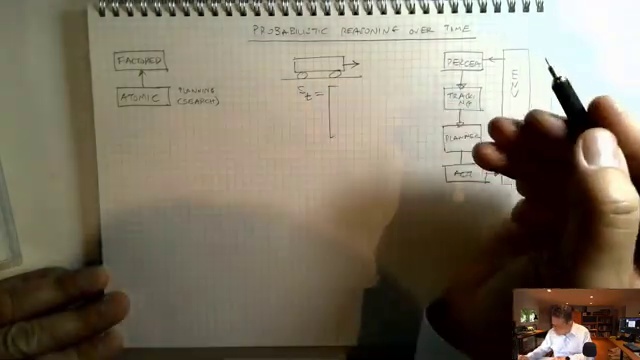 PROBABILISTIC REASONING OVER TIME
FACTORED
ATOMIC
PLANNING
(SEARCH)
S_t = [
PERCEP.
TRACK
ING
PLANNER
ACT
ENV